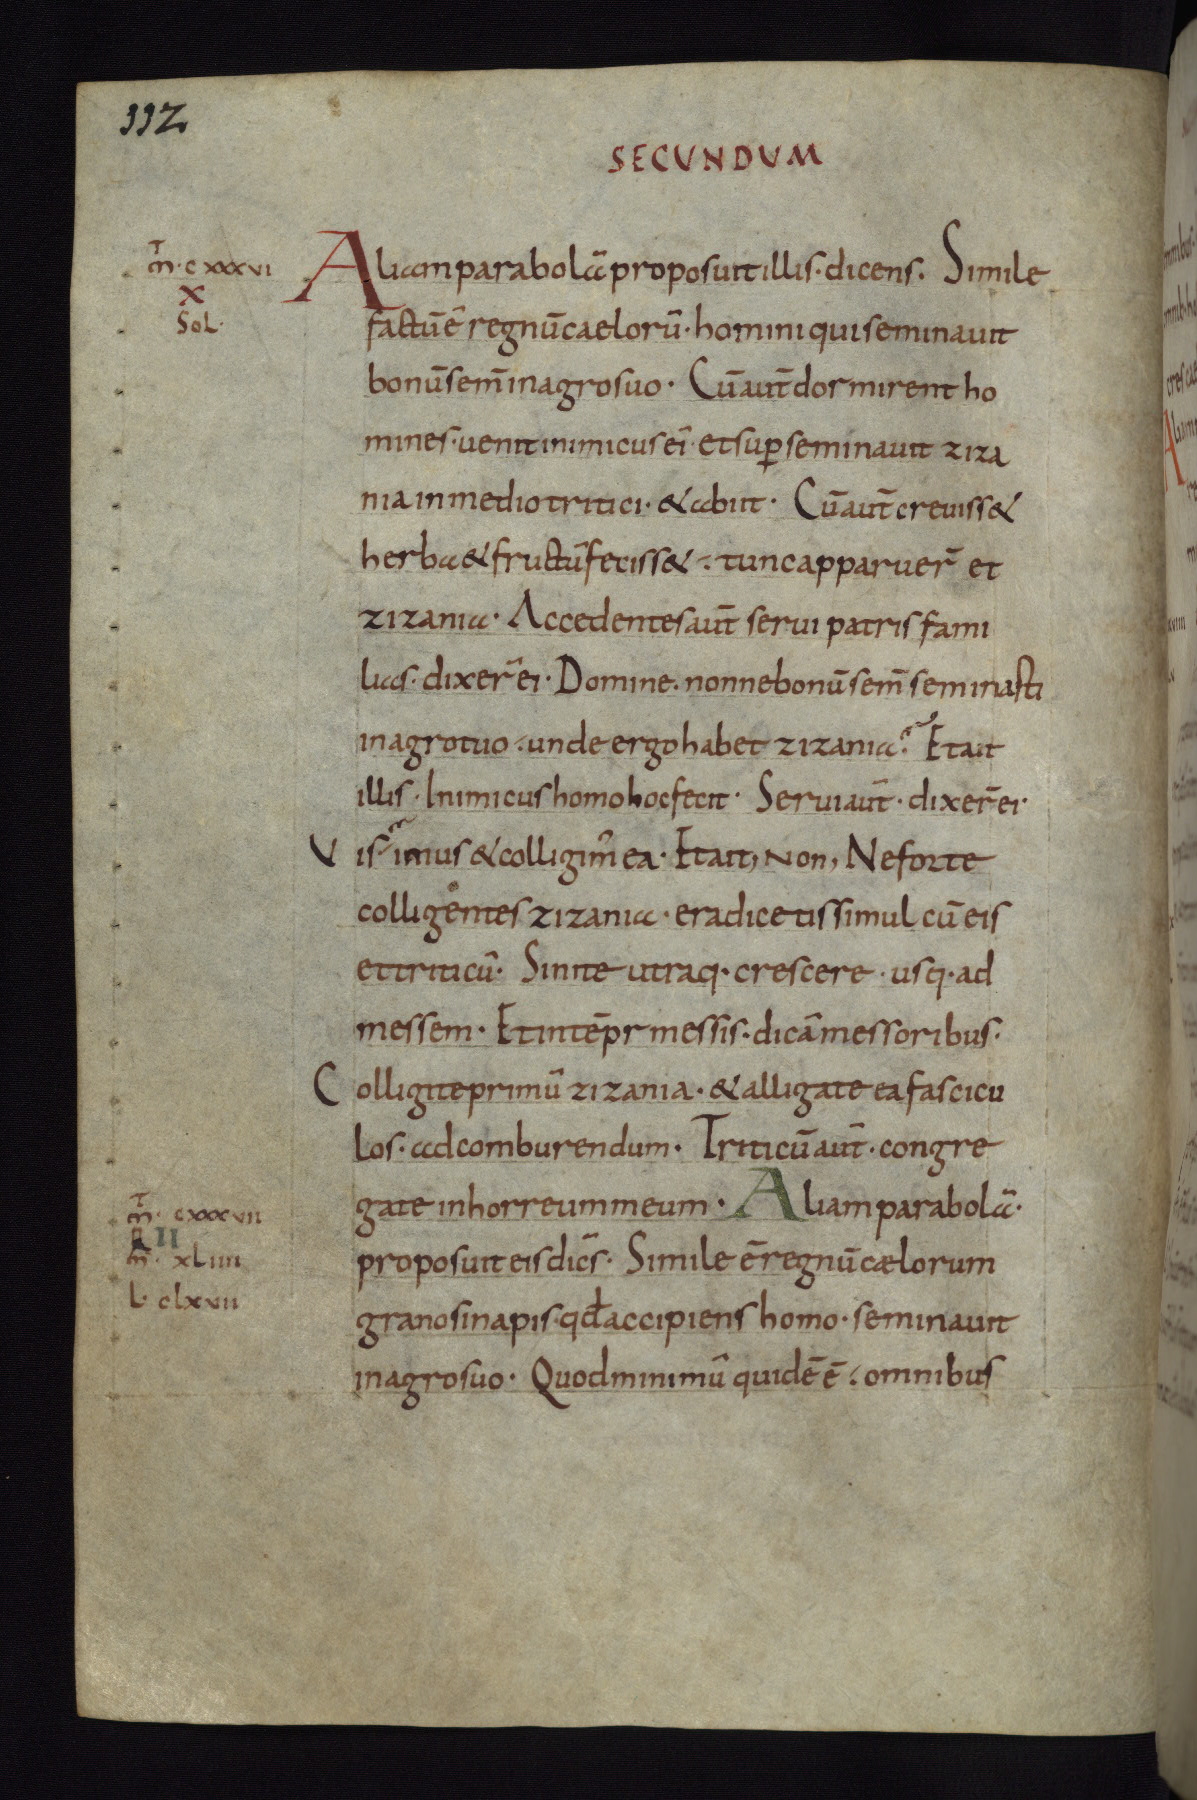 332
SECUNDUM
m̄ · cxxxvi
X
Sol ·
Aliam parabolā proposuit illis · dicens · Simile
factū ē regnū caelorū · homini qui seminauit
bonū sem̄ in agro suo · Cū aut̄ dormirent ho
mines · uenit inimicus ei · et suꝑseminauit ziza
nia in medio tritici · & abiit · Cū aut̄ creuiss&
herba & fructū feciss& · tunc apparuer̄ et
zizania · Accedentes aut̄ serui patris fami
lias · dixer̄ ei · Domine · nonne bonū sem̄ seminasti
in agro tuo · unde ergo habet zizania? Et ait
illis · Inimicus homo hoc fecit · Serui aut̄ · dixer̄ ei ·
Vis imus & colligim̄ ea · Et ait, Non, Ne forte
colligentes zizania · eradicetis simul cū eis
et triticū · Sinite utraq · crescere · usq · ad
messem · Et in tēpr messis · dicā messoribus ·
Colligite primū zizania · & alligate ea fascicu
los · ad comburendum · Triticū aut̄ · congre
gate in horreum meum · Aliam parabolā ·
m̄ · cxxxvii
II
m̄ · xliiii
L · clxvii
proposuit eis dic̄s · Simile ē regnū cælorum
grano sinapis · qđ accipiens homo · seminauit
in agro suo · Quod minimū quidē ē · omnibus